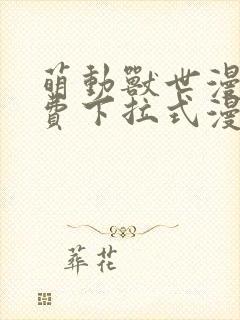 萌動獸世漫
費下拉式漫
葬花